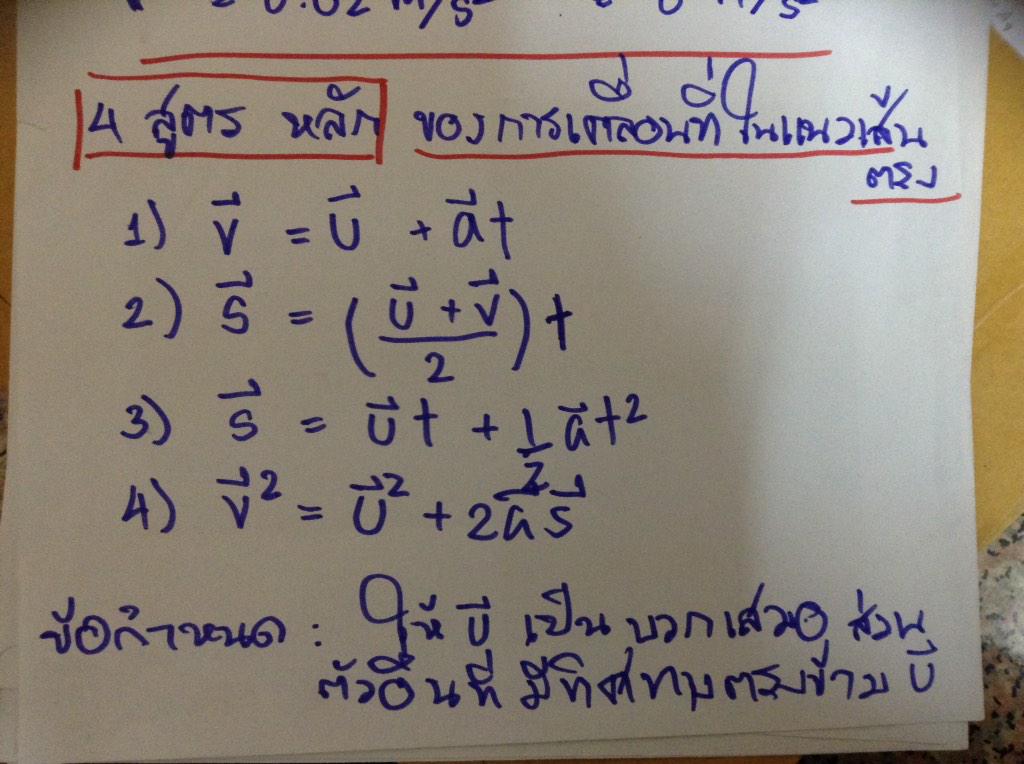 = 0.02 m/s
4 สูตร หลัก ของการเคลื่อนที่ในแนวเส้น
ตรง
1) v⃗ = u⃗ + a⃗t
2) s⃗ = (u⃗ + v⃗ / 2) t
3) s⃗ = u⃗t + 1/2 a⃗t²
4) v⃗² = u⃗² + 2a⃗s⃗
ข้อกำหนด : ให้ u⃗ เป็น บวกเสมอ ส่วน
ตัวอื่นที่ มีทิศทางตรงข้าม u⃗